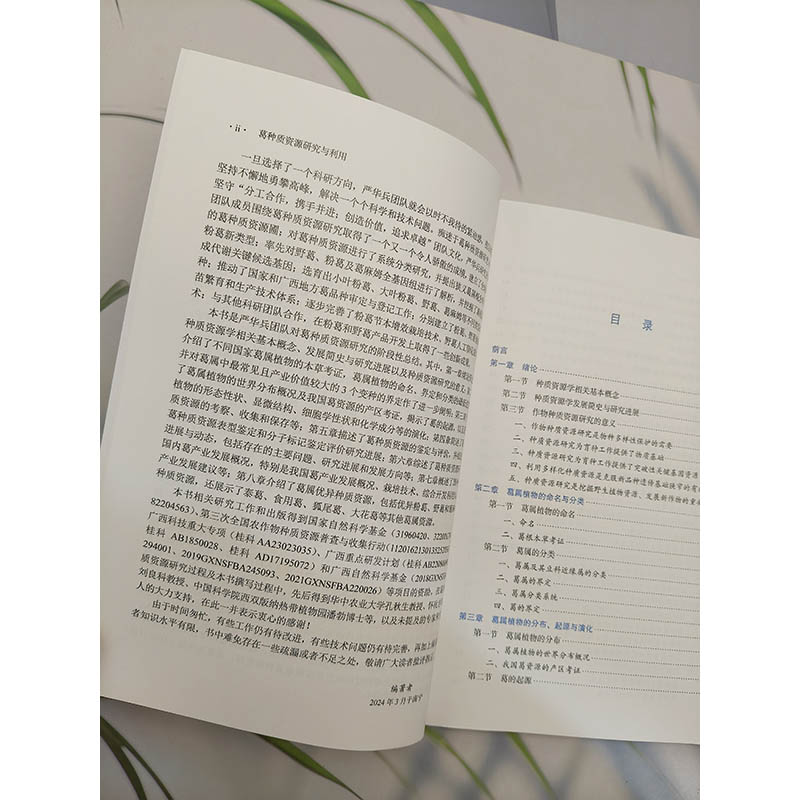 · ii · 葛种质资源研究与利用
一旦选择了一个科研方向，严华兵团队就会以时不我待的紧迫感，
坚持不懈地勇攀高峰，解决一个个科学和技术问题。痴迷于葛种质资源
坚守“分工合作，携手并进；创造价值，追求卓越”团队文化，严华兵
团队成员围绕葛种质资源研究取得了一个又一个令人骄傲的成绩，建立了
的葛种质资源圃；对葛种质资源进行了系统分类研究，并提出
粉葛新类型；率先对野葛、粉葛及葛麻姆全基因组进行了解析，并挖掘了
成代谢关键候选基因；选育出小叶粉葛、大叶粉葛、野葛、葛麻姆等不同类型
种；推动了国家和广西地方葛品种审定与登记工作；分别建立了粉葛、野葛
苗繁育和生产技术体系；逐步完善了粉葛节本增效栽培技术、野葛人工
术；与其他科研团队合作，在粉葛和野葛产品开发上取得了一些创新成果。
本书是严华兵团队对葛种质资源研究的阶段性总结。其中，第一章
种质资源学相关基本概念、发展简史与研究进展以及种质资源研究的意义；
介绍了不同国家葛属植物的本草考证，葛属植物的命名、界定和分类的
并对葛属中最常见且产业价值较大的 3 个变种的界定作了进一步阐明；第三
了葛属植物的世界分布概况及我国葛资源的产区考证，揭示了葛的起源，以及
植物的形态性状、显微结构、细胞学性状和化学成分等的演化；第四章
质资源的考察、收集和保存等；第五章描述了葛种质资源的鉴定与评价，
葛种质资源表型鉴定和分子标记鉴定评价研究进展；第六章综述了葛种质
进展与动态，包括存在的主要问题、研究进展和发展方向等；第七章概述了
国内葛产业发展概况，特别是我国葛产业发展概况、栽培技术、综合开发
产业发展建议等；第八章介绍了葛属优异种质资源，包括优异粉葛、野葛和葛麻
质资源，还展示了泰葛、食用葛、狐尾葛、大花葛等其他葛属资源。
本书相关研究工作和出版得到国家自然科学基金（31960420、
82204563）、第三次全国农作物种质资源普查与收集行动（
广西科技重大专项（桂科 AA23023035）、广西重点研发计划（桂科
桂科 AB1850028、桂科 AD17195072）和广西自然科学基金（2018GXNSF
294001、2019GXNSFBA245093、2021GXNSFBA220026）等项目的资助。
质资源研究过程及本书撰写过程中，先后得到华中农业大学孔秋生教授、
刘良科教授、中国科学院西双版纳热带植物园潘勃博士等，以及未提及的专家
人的大力支持，在此一并表示衷心的感谢！
由于时间匆忙，有些工作仍有待改进，有些技术问题仍有待完善，再加上编
者知识水平有限，书中难免存在一些疏漏或者不足之处，敬请广大读者批评指正
编著者
2024 年 3 月于南宁
目 录
前言
第一章 绪论
第一节 种质资源学相关基本概念
第二节 种质资源学发展简史与研究进展
第三节 作物种质资源研究的意义
一、作物种质资源研究是物种多样性保护的需要
二、种质资源研究为育种工作提供了物质基础
三、种质资源研究为育种工作提供了突破性关键基因资源
四、利用多样化种质资源是克服新品种遗传基础狭窄的有
五、种质资源研究是挖掘野生植物资源、发展新作物的重
第二章 葛属植物的命名与分类
第一节 葛属植物的命名
一、命名
二、葛根本草考证
第二节 葛属的分类
一、葛属及其豆科近缘属的分类
二、葛属的界定
三、葛属分类系统
四、葛的界定
第三章 葛属植物的分布、起源与演化
第一节 葛属植物的分布
一、葛属植物的世界分布概况
二、我国葛资源的产区考证
第二节 葛的起源